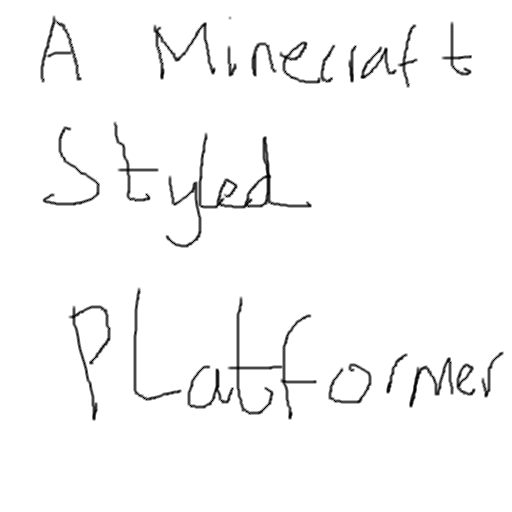 A Minecraft
Styled
Platformer